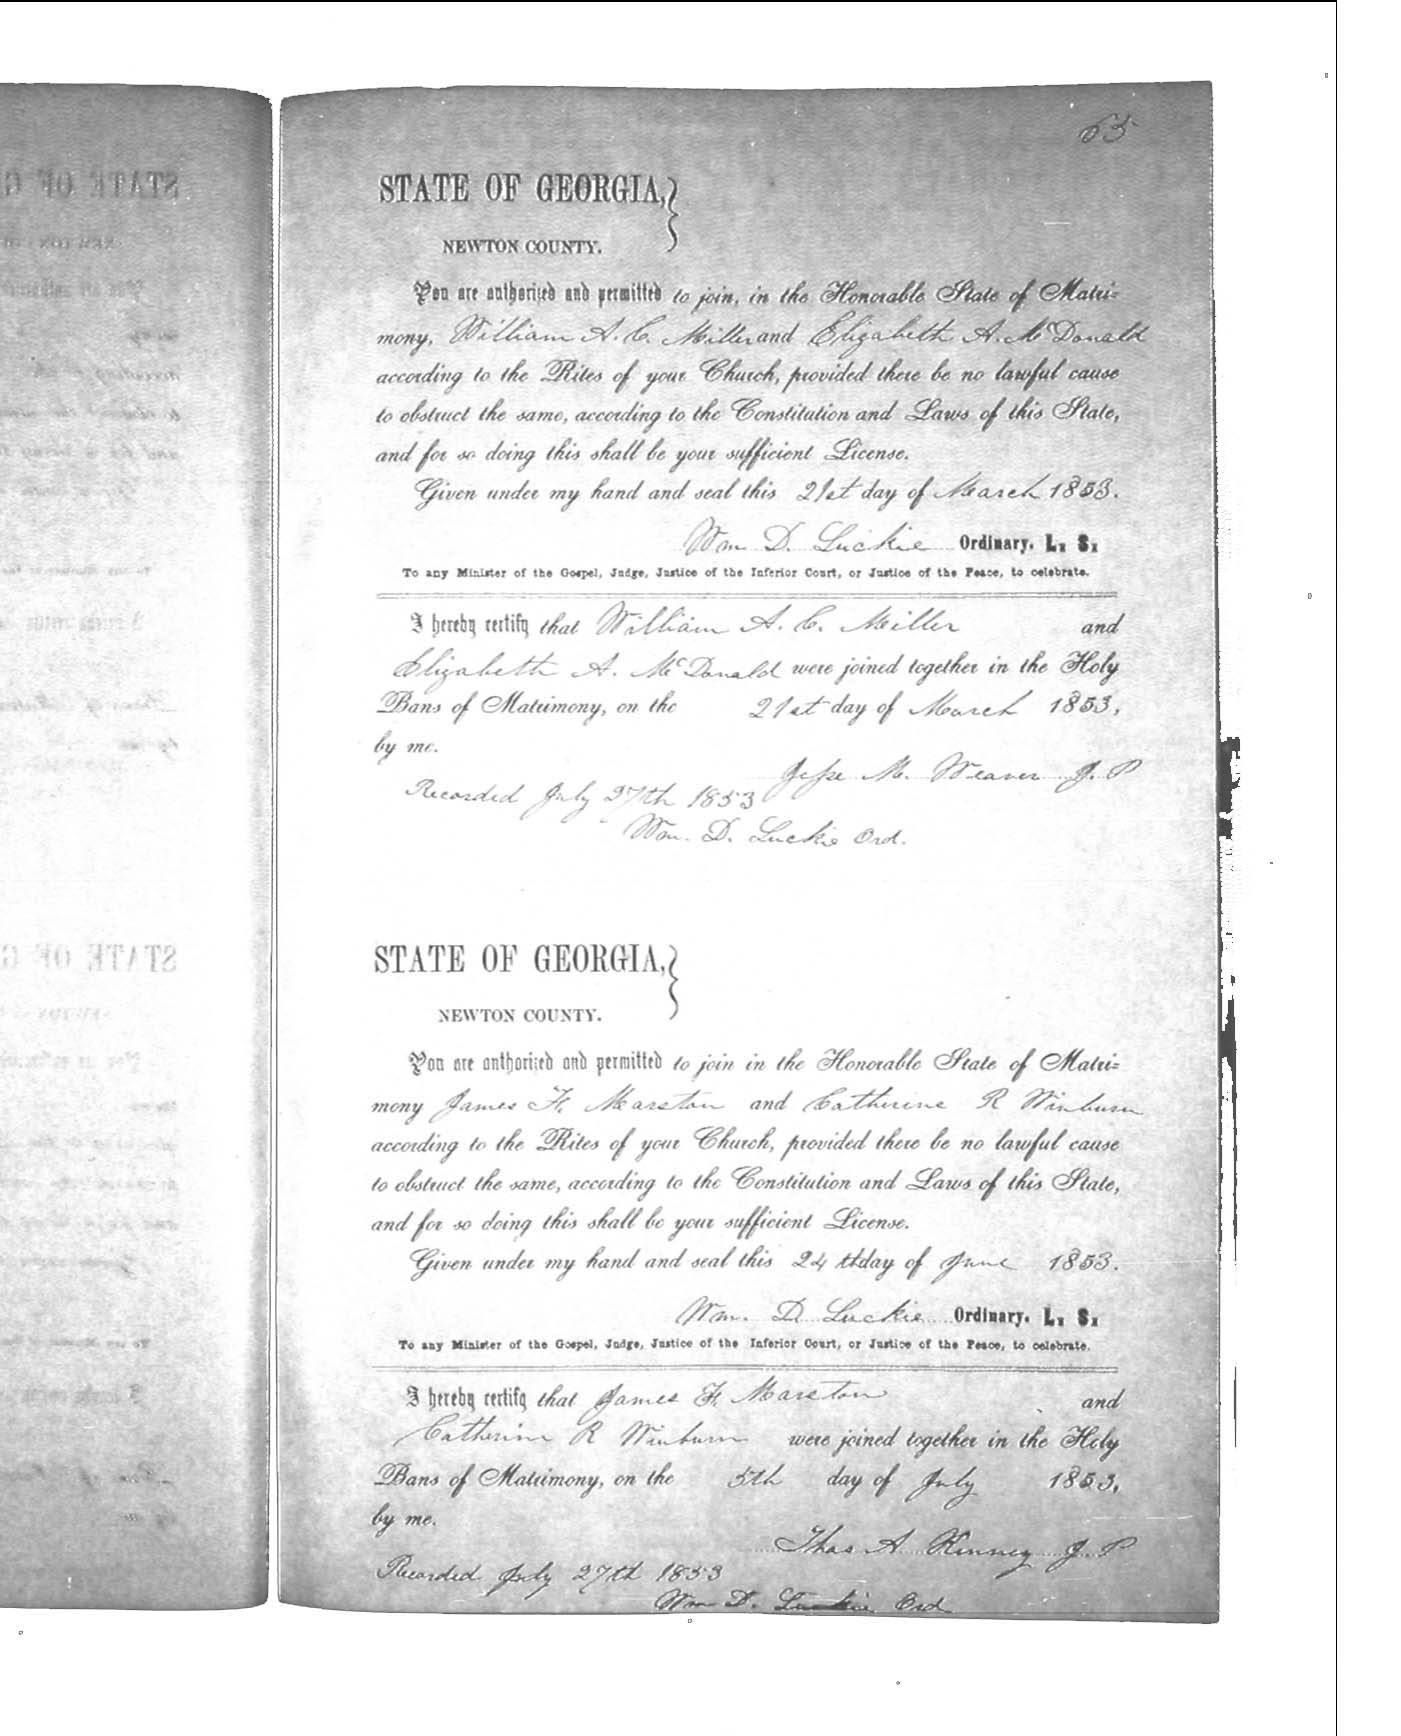 65
STATE OF GEORGIA,
NEWTON COUNTY.
You are authorized and permitted to join, in the Honorable State of Matri=
mony, William A. C. Miller and Elizabeth A. McDonald
according to the Rites of your Church, provided there be no lawful cause
to obstruct the same, according to the Constitution and Laws of this State,
and for so doing this shall be your sufficient License.
Given under my hand and seal this 21st day of March 1853.
Wm D. Luckie Ordinary. L. S.
To any Minister of the Gospel, Judge, Justice of the Inferior Court, or Justice of the Peace, to celebrate.
I hereby certify that William A. C. Miller and
Elizabeth A. McDonald were joined together in the Holy
Bans of Matrimony, on the 21st day of March 1853,
by me.
Jesse M. Weaver J. P
Recorded July 27th 1853
Wm. D. Luckie Ord.
STATE OF GEORGIA,
NEWTON COUNTY.
You are authorized and permitted to join in the Honorable State of Matri=
mony James F. Marston and Catherine R Winburn
according to the Rites of your Church, provided there be no lawful cause
to obstruct the same, according to the Constitution and Laws of this State,
and for so doing this shall be your sufficient License.
Given under my hand and seal this 24th day of June 1853.
Wm. D Luckie Ordinary. L. S.
To any Minister of the Gospel, Judge, Justice of the Inferior Court, or Justice of the Peace, to celebrate.
I hereby certify that James F. Marston and
Catherine R Winburn were joined together in the Holy
Bans of Matrimony, on the 5th day of July 1853,
by me.
Thos A Kinney J. P
Recorded July 27th 1853
Wm D. Luckie Ord